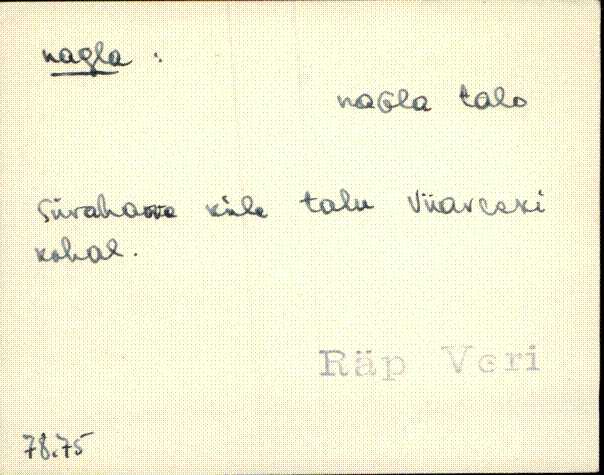 nagla :
naGla talo
Sürahawa küla talu Viiarceki
kohal.
Räp Veri
78.75